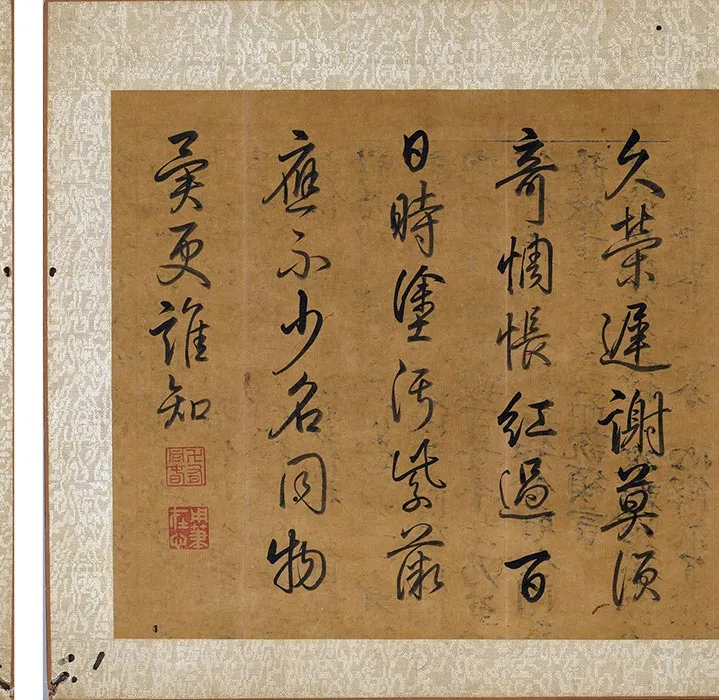 久榮遲謝莫須
奇惆悵紅過百
日時塗污紫薇
應不少名同物
異更誰知
用筆在心